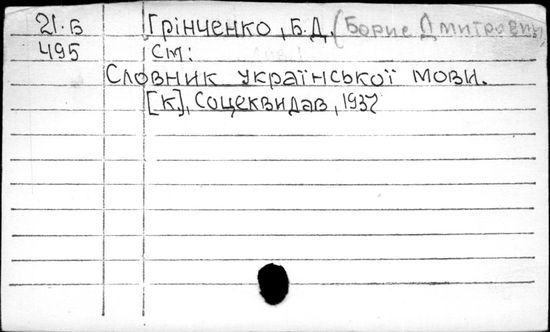 21.Б Грінченко, Б.Д. (Борис Дмитрович)
495 см:
Словник української мови.
[К.], Соцеквидав, 1937